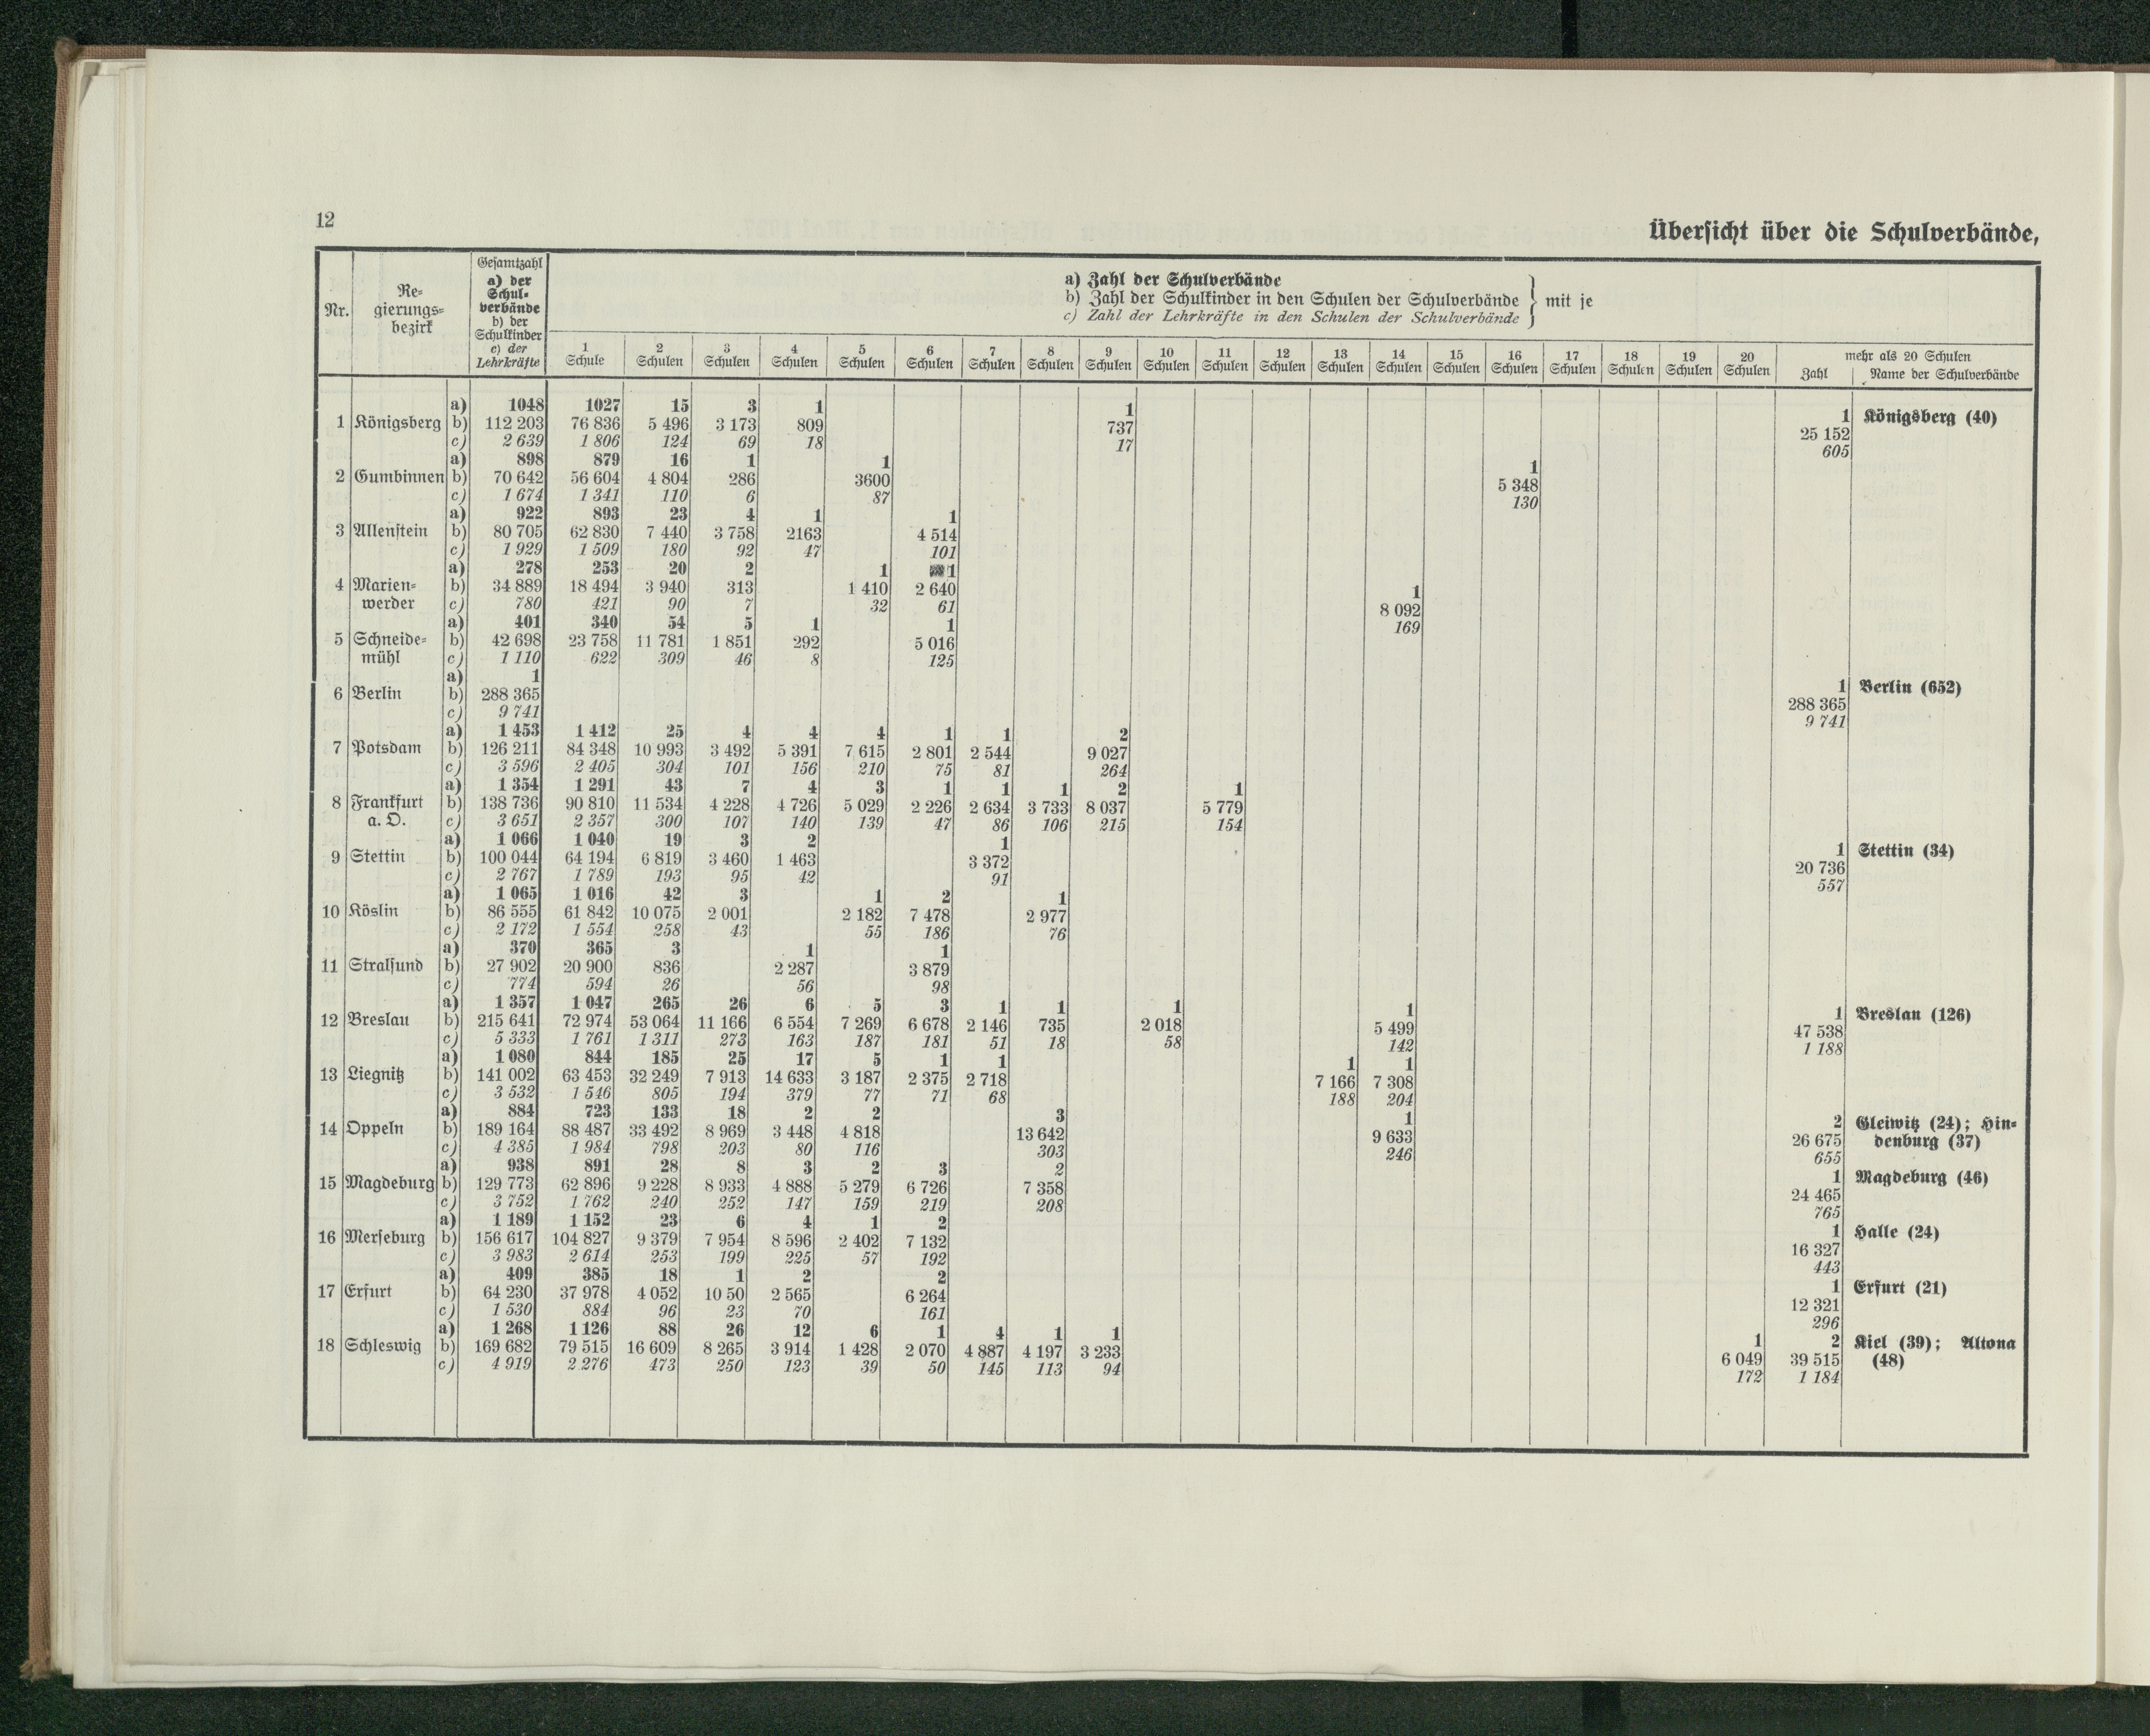 12
Übersicht über die Schulverbände,
Nr.
Re-
gierungs-
bezirk
Gesamtzahl
a) der
Schul-
verbände
b) der
Schulkinder
c) der
Lehrkräfte
a) Zahl der Schulverbände
b) Zahl der Schulkinder in den Schulen der Schulverbände } mit je
c) Zahl der Lehrkräfte in den Schulen der Schulverbände
1 Schule 2 Schulen 3 Schulen 4 Schulen 5 Schulen 6 Schulen 7 Schulen 8 Schulen 9 Schulen 10 Schulen 11 Schulen 12 Schulen 13 Schulen 14 Schulen 15 Schulen 16 Schulen 17 Schulen 18 Schulen 19 Schulen 20 Schulen
mehr als 20 Schulen
Zahl Name der Schulverbände
a) 1048 1027 15 3 1 1 1 Königsberg (40)
1 Königsberg b) 112 203 76 836 5 496 3 173 809 737 25 152
c) 2 639 1 806 124 69 18 17 605
a) 898 879 16 1 1 1
2 Gumbinnen b) 70 642 56 604 4 804 286 3600 5 348
c) 1 674 1 341 110 6 87 130
a) 922 893 23 4 1 1
3 Allenstein b) 80 705 62 830 7 440 3 758 2163 4 514
c) 1 929 1 509 180 92 47 101
a) 278 253 20 2 1 1 1
4 Marien- b) 34 889 18 494 3 940 313 1 410 2 640 8 092
werder c) 780 421 90 7 32 61 169
a) 401 340 54 5 1 1
5 Schneide- b) 42 698 23 758 11 781 1 851 292 5 016
mühl c) 1 110 622 309 46 8 125
a) 1 1 Berlin (652)
6 Berlin b) 288 365 288 365
c) 9 741 9 741
a) 1 453 1 412 25 4 4 4 1 1 2
7 Potsdam b) 126 211 84 348 10 993 3 492 5 391 7 615 2 801 2 544 9 027
c) 3 596 2 405 304 101 156 210 75 81 264
a) 1 354 1 291 43 7 4 3 1 1 1 2 1
8 Frankfurt b) 138 736 90 810 11 534 4 228 4 726 5 029 2 226 2 634 3 733 8 037 5 779
a. O. c) 3 651 2 357 300 107 140 139 47 86 106 215 154
a) 1 066 1 040 19 3 2 1 1 Stettin (34)
9 Stettin b) 100 044 64 194 6 819 3 460 1 463 3 372 20 736
c) 2 767 1 789 193 95 42 91 557
a) 1 065 1 016 42 3 1 2 1
10 Köslin b) 86 555 61 842 10 075 2 001 2 182 7 478 2 977
c) 2 172 1 554 258 43 55 186 76
a) 370 365 3 1 1
11 Stralsund b) 27 902 20 900 836 2 287 3 879
c) 774 594 26 56 98
a) 1 357 1 047 265 26 6 5 3 1 1 1 1 1 Breslau (126)
12 Breslau b) 215 641 72 974 53 064 11 166 6 554 7 269 6 678 2 146 735 2 018 5 499 47 538
c) 5 333 1 761 1 311 273 163 187 181 51 18 58 142 1 188
a) 1 080 844 185 25 17 5 1 1 1 1
13 Liegnitz b) 141 002 63 453 32 249 7 913 14 633 3 187 2 375 2 718 7 166 7 308
c) 3 532 1 546 805 194 379 77 71 68 188 204
a) 884 723 133 18 2 2 3 1 2 Gleiwitz (24); Hin-
14 Oppeln b) 189 164 88 487 33 492 8 969 3 448 4 818 13 642 9 633 26 675 denburg (37)
c) 4 385 1 984 798 203 80 116 303 246 655
a) 938 891 28 8 3 2 3 2 1 Magdeburg (46)
15 Magdeburg b) 129 773 62 896 9 228 8 933 4 888 5 279 6 726 7 358 24 465
c) 3 752 1 762 240 252 147 159 219 208 765
a) 1 189 1 152 23 6 4 1 2 1 Halle (24)
16 Merseburg b) 156 617 104 827 9 379 7 954 8 596 2 402 7 132 16 327
c) 3 983 2 614 253 199 225 57 192 443
a) 409 385 18 1 2 2 1 Erfurt (21)
17 Erfurt b) 64 230 37 978 4 052 10 50 2 565 6 264 12 321
c) 1 530 884 96 23 70 161 296
a) 1 268 1 126 88 26 12 6 1 4 1 1 1 2 Kiel (39); Altona
18 Schleswig b) 169 682 79 515 16 609 8 265 3 914 1 428 2 070 4 887 4 197 3 233 6 049 39 515 (48)
c) 4 919 2 276 473 250 123 39 50 145 113 94 172 1 184